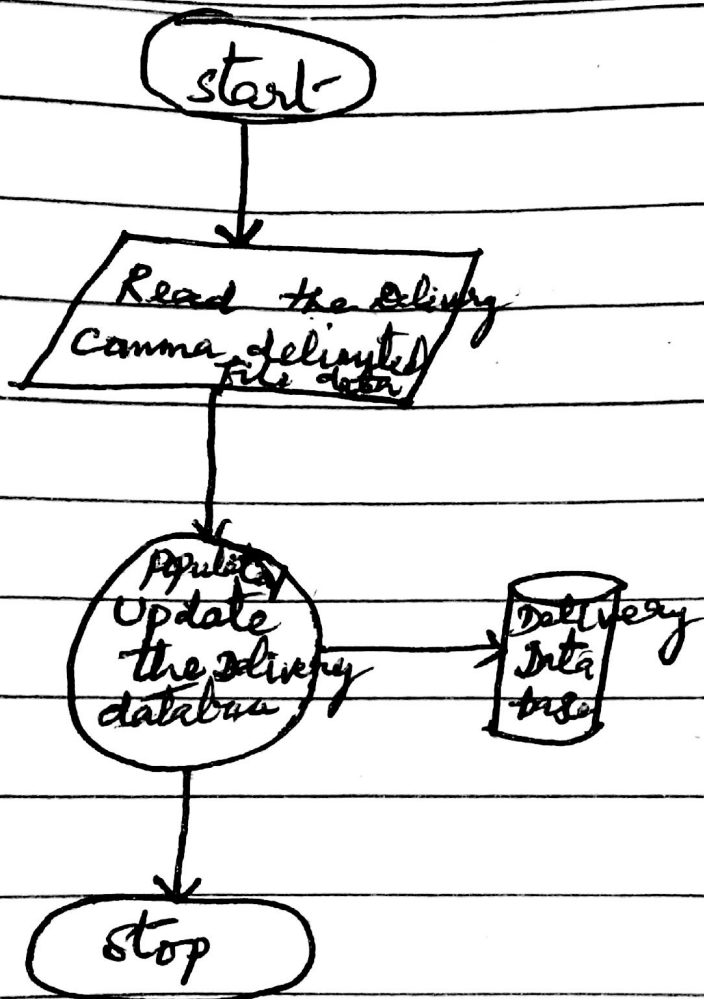 start
Read the Delivery
Comma delimited
File data
Populate/
Update
the Delivery
database
Delivery
Data
base
stop